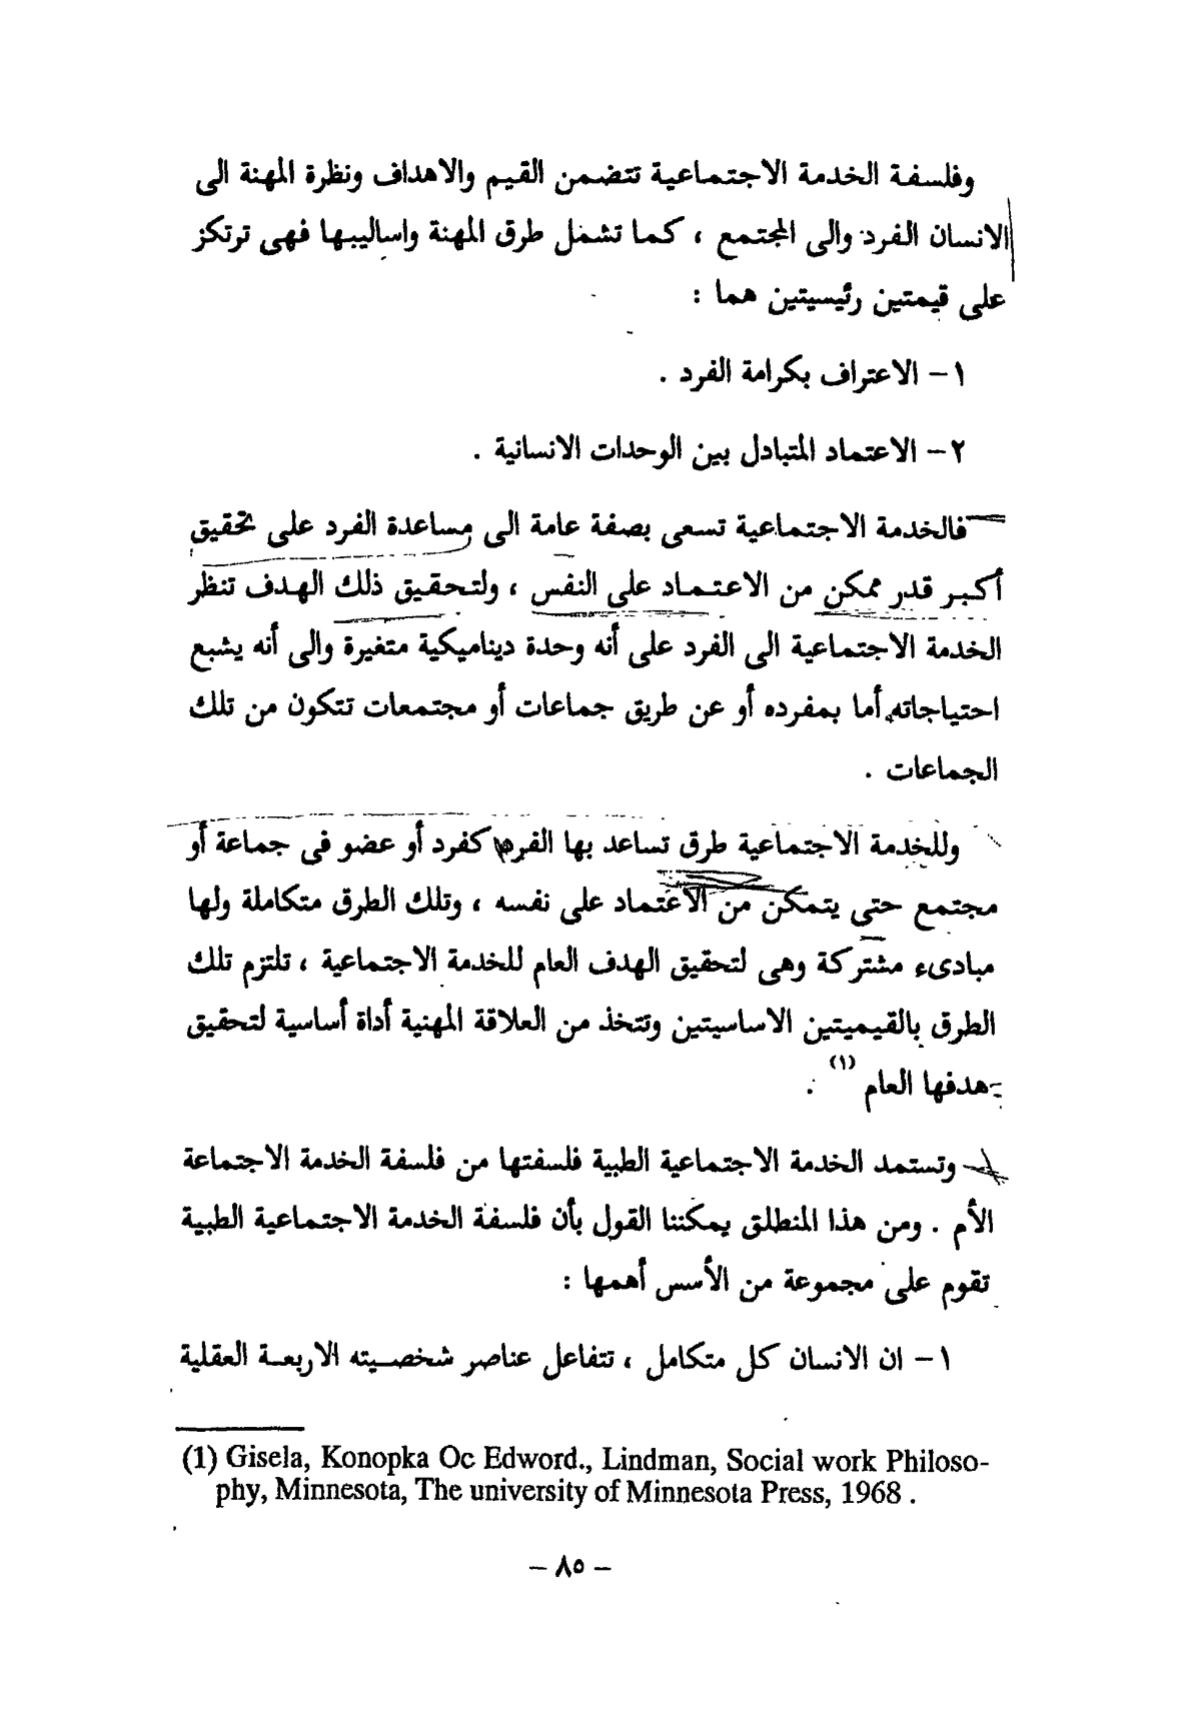 وفلسفة الخدمة الاجتماعية تتضمن القيم والاهداف ونظرة المهنة الى
الانسان الفرد والى المجتمع ، كما تشمل طرق المهنة واساليبها فهى ترتكز
على قيمتين رئيسيتين هما :
١ – الاعتراف بكرامة الفرد .
٢ – الاعتماد المتبادل بين الوحدات الانسانية .
فالخدمة الاجتماعية تسعى بصفة عامة الى مساعدة الفرد على تحقيق
أكبر قدر ممكن من الاعتماد على النفس ، ولتحقيق ذلك الهدف تنظر
الخدمة الاجتماعية الى الفرد على أنه وحدة ديناميكية متغيرة والى أنه يشبع
احتياجاته أما بمفرده أو عن طريق جماعات أو مجتمعات تتكون من تلك
الجماعات .
وللخدمة الاجتماعية طرق تساعد بها الفرد كفرد أو عضو فى جماعة أو
مجتمع حتى يتمكن من الاعتماد على نفسه ، وتلك الطرق متكاملة ولها
مبادىء مشتركة وهى لتحقيق الهدف العام للخدمة الاجتماعية ، تلتزم تلك
الطرق بالقيميتين الاساسيتين وتتخذ من العلاقة المهنية أداة أساسية لتحقيق
هدفها العام (١) .
وتستمد الخدمة الاجتماعية الطبية فلسفتها من فلسفة الخدمة الاجتماعة
الأم . ومن هذا المنطلق يمكننا القول بأن فلسفة الخدمة الاجتماعية الطبية
تقوم على مجموعة من الأسس أهمها :
١ – ان الانسان كل متكامل ، تتفاعل عناصر شخصيته الاربعة العقلية
(1) Gisela, Konopka Oc Edword., Lindman, Social work Philoso-
phy, Minnesota, The university of Minnesota Press, 1968 .
– ٨٥ –